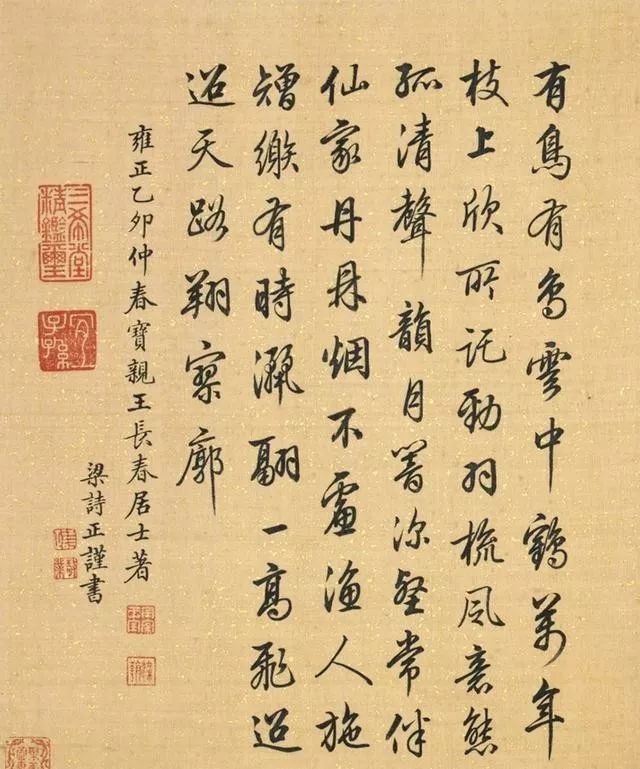 有鳥有鳥雲中鶴萬年
枝上欣所託勁羽梳風意態
孤清聲韻月深壑常伴
仙家丹鼎烟不慮漁人施
矰繳有時灑翮一高飛迢
迢天路翔寥廓
雍正乙卯仲春寶親王長春居士著
梁詩正謹書
三希堂
精鑑璽
宜
子孫